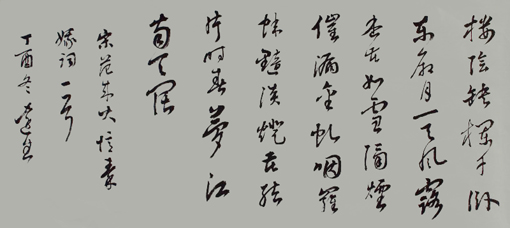 楼陰缺欄干卧
东厢月一天风露
杏花如雪隔煙
催漏金虬咽羅
帏黯淡燈花结
片时春夢江
南天阔
宋范成大忆秦
娥词一首
丁酉冬